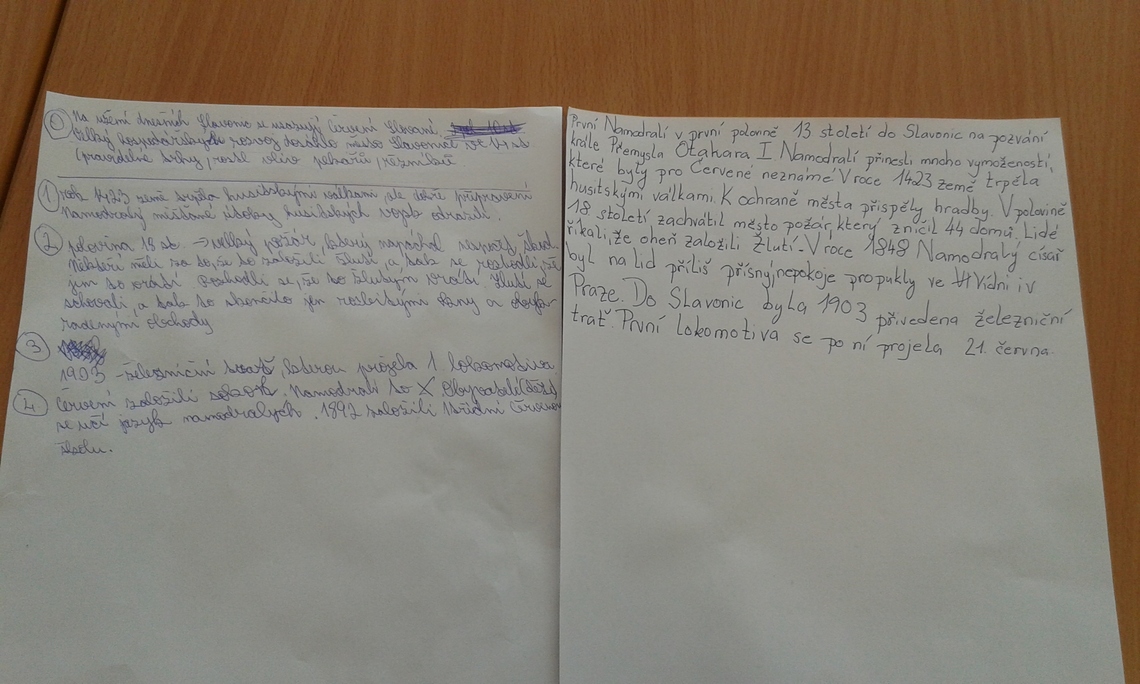 0 Na území dnešních Slavonic se usazují Červení Slované
Velký hospodářský rozvoj dosáhlo město Slavonice ve 14 st
(pravidelné trhy, rostl vliv pekařů, řezníků
1 rok 1423 země trpěla husitskými válkami ale dobře připravení
Namodralý měšťané útoky husitských vojsk odrazili.
2 polovina 18 st. → velký požár který napáchal
Někteří měli za to, že to založili Žlutí, a tak se rozhodli, že
jim to vrátí Rozhodli se, že to Žlutým vrátí. Žlutí se
schovali, a tak to skončilo jen rozbitými okny a
obchody
3
1903 - železniční trať, kterou projela 1 lokomotiva
4 Červení založili. Namodralí to X. Obyvatelé (děti)
se učí jazyk namodralých. 1892 založili Červenou
školu.
První Namodralí v první polovině 13 století do Slavonic na pozvání
krále Přemysla Otahara I Namodralí přinesli mnoho vymožeností,
které byly pro Červené neznámé. V roce 1423 země trpěla
husitskými válkami. K ochraně města přispěly hradby. V polovině
18 století zachvátil město požár, který zničil 44 domů. Lidé
říkali, že oheň založili Žlutí. V roce 1848 Namodralý císař
byl na lid příliš přísný, nepokoje propukly ve Vídni i v
Praze. Do Slavonic byla 1903 přivedena železniční
trať. První lokomotiva se po ní projela 21. června.